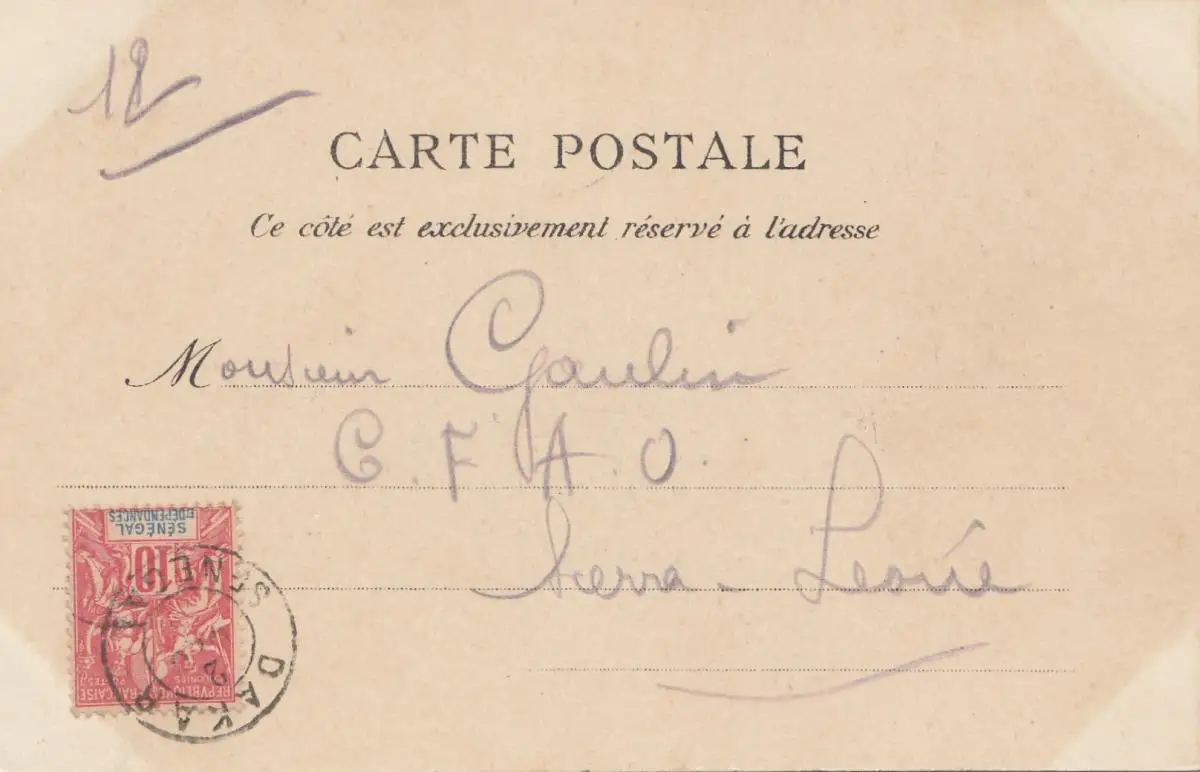 18
CARTE POSTALE
Ce côté est exclusivement réservé à l'adresse
Monsieur Gaulin
C. F. A. O.
Sierra-Leone
SÉNÉGAL
ET DÉPENDANCES
10
RÉPUBLIQUE FRANÇAISE
COLONIES POSTES
DAKAR SENEGAL